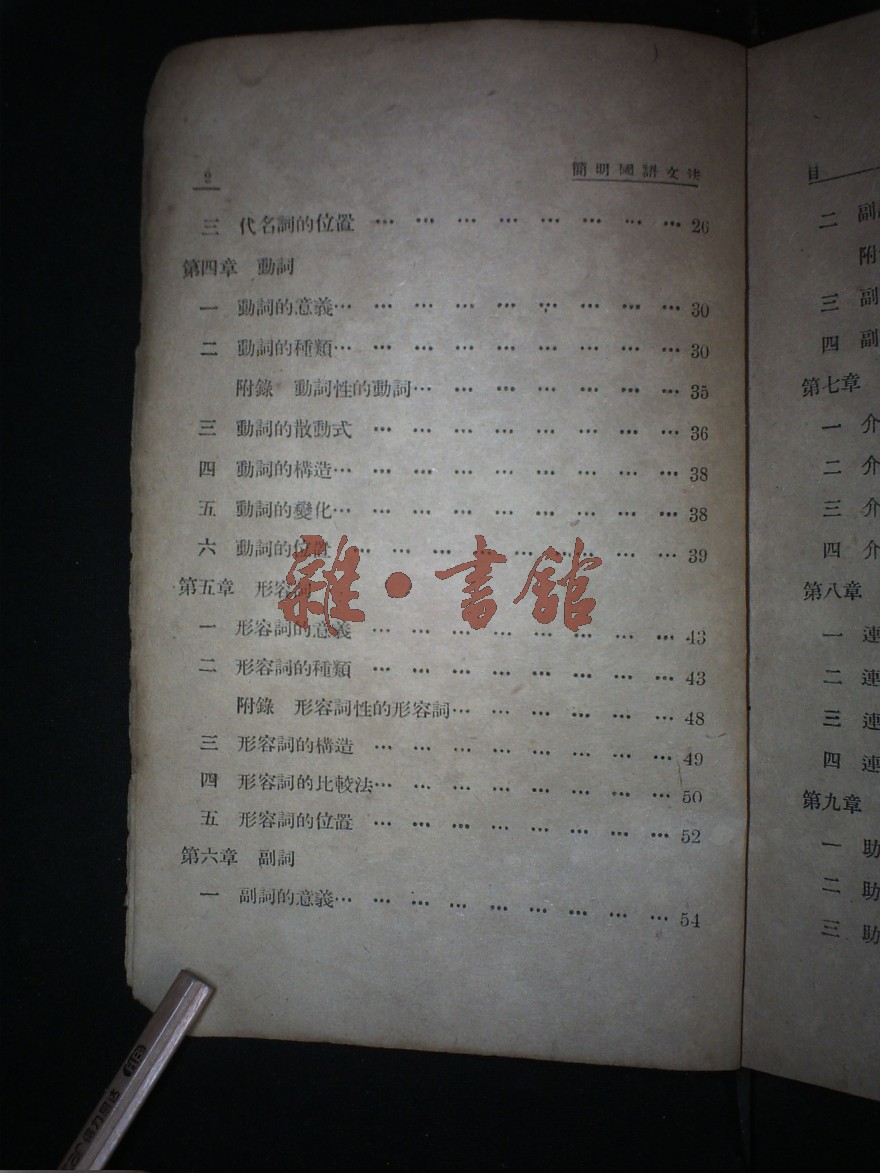 2 簡明國語文法
三 代名詞的位置 … … … … … … … … 26
第四章 動詞
一 動詞的意義… … … … … … … … … 30
二 動詞的種類… … … … … … … … … 30
附錄 動詞性的動詞… … … … … … … 35
三 動詞的散動式 … … … … … … … … 36
四 動詞的構造… … … … … … … … … 38
五 動詞的變化… … … … … … … … … 38
六 動詞的位置 … … … … … … … … … 39
第五章 形容詞
一 形容詞的意義 … … … … … … … … 43
二 形容詞的種類 … … … … … … … … 43
附錄 形容詞性的形容詞… … … … … … 48
三 形容詞的構造 … … … … … … … … 49
四 形容詞的比較法… … … … … … … … 50
五 形容詞的位置 … … … … … … … … 52
第六章 副詞
一 副詞的意義… … … … … … … … … 54
雜·書館
目
二 副
附
三 副
四 副
第七章
一 介
二 介
三 介
四 介
第八章
一 連
二 連
三 連
四 連
第九章
一 助
二 助
三 助
HB